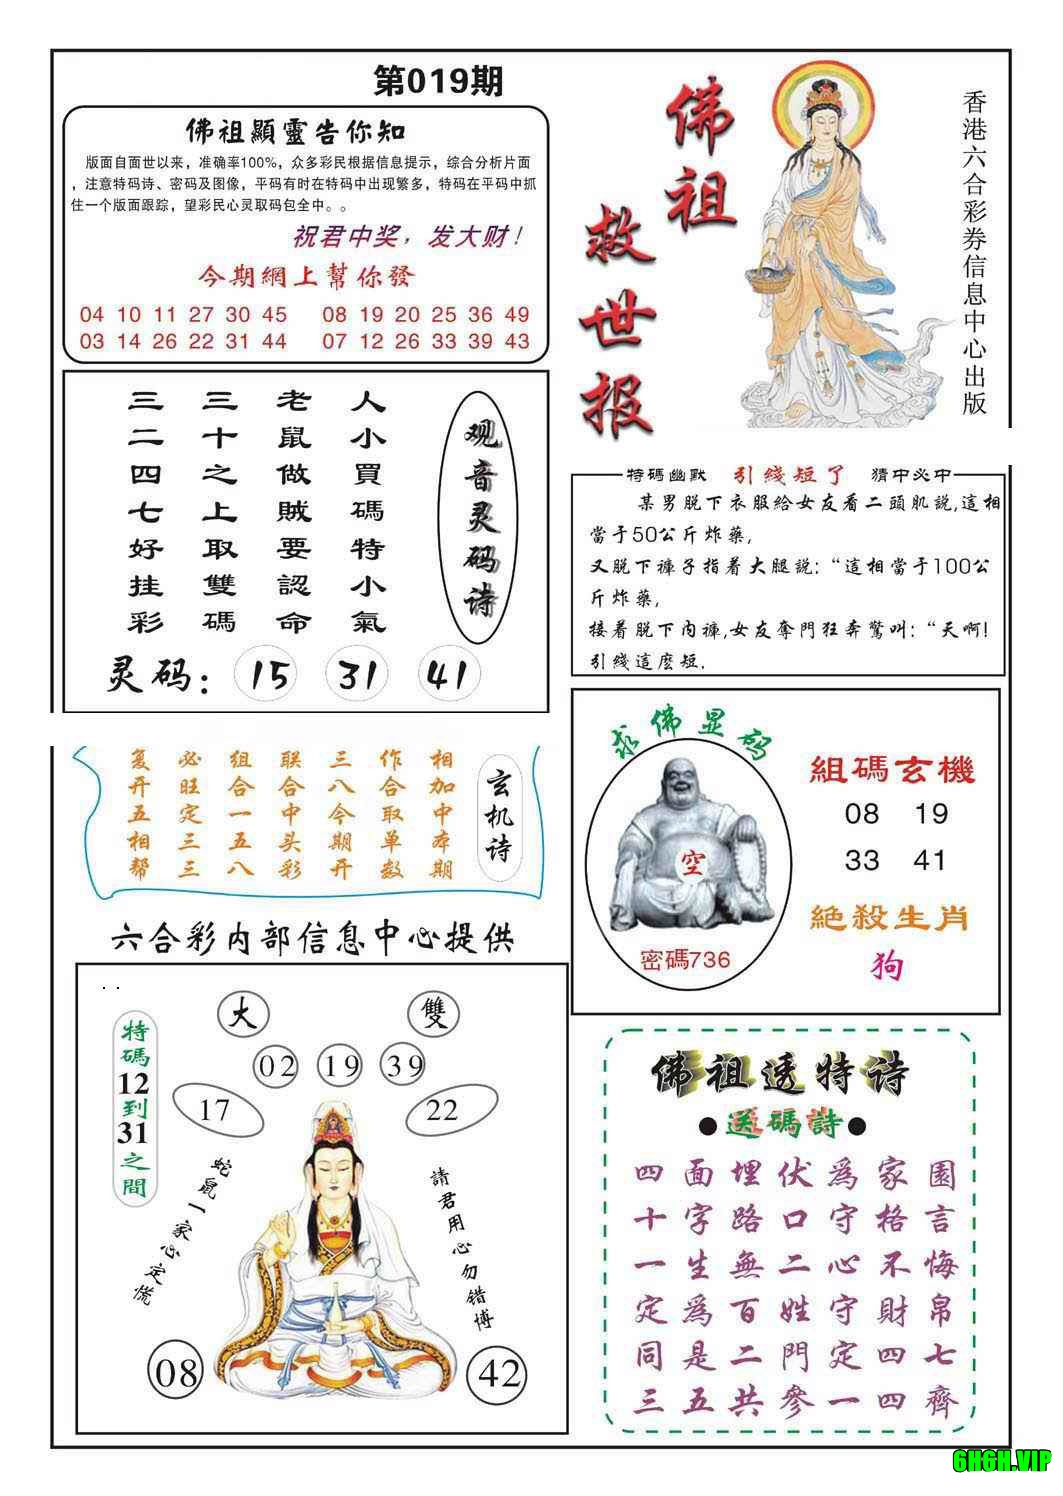 第019期
佛祖顯靈告你知
版面自面世以来，准确率100%，众多彩民根据信息提示，综合分析片面
，注意特码诗、密码及图像，平码有时在特码中出现繁多，特码在平码中抓
住一个版面跟踪，望彩民心灵取码包全中。。
祝君中奖，发大财！
今期網上幫你發
04 10 11 27 30 45 08 19 20 25 36 49
03 14 26 22 31 44 07 12 26 33 39 43
佛祖
救世报
香港六合彩券信息中心出版
三三老人
二十鼠小
四之做買
七上賊碼
好取要特
挂雙認小
彩碼命氣
观音灵码诗
灵码：15 31 41
特碼幽默 引綫短了 猜中必中
某男脱下衣服給女友看二頭肌説,這相
當于50公斤炸藥,
又脱下褲子指着大腿説:“這相當于100公
斤炸藥,
接着脱下内褲,女友奪門狂奔驚叫:“天啊!
引綫這麽短.
复必组联三作相
开旺合合八合加
五定一中今取中
相三五头期单本
帮三八彩开数期
玄机诗
求佛显码
空
密碼736
組碼玄機
08 19
33 41
絕殺生肖
狗
六合彩内部信息中心提供
大 雙
02 19 39
17 22
特碼12到31之間
蛇鼠一家心定慌
請君用心勿错博
08 42
佛祖透特诗
●送碼詩●
四面埋伏為家園
十字路口守格言
一生無二心不悔
定為百姓守財帛
同是二門定四七
三五共參一四齊
6H6H.VIP